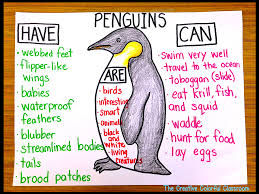 PENGUINS
HAVE
• webbed feet
• flipper-like
wings
• babies
• waterproof
feathers
• blubber
• streamlined bodies
• tails
• brood patches
ARE
• birds
• interesting
• smart
• animals
• black
and
white
• living
creatures
CAN
• swim very well
• travel to the ocean
• toboggan (slide)
• eat krill, fish,
and squid
• waddle
• hunt for food
• lay eggs
The Creative Colorful Classroom